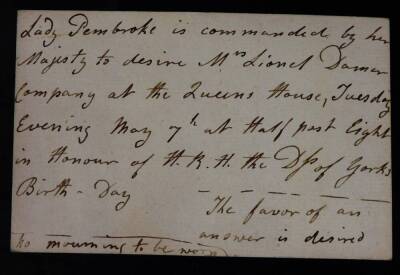 Lady Pembroke is commanded by her
Majesty to desire Mrs Lionel Damer
Company at the Queens House, Tuesday
Evening May 7th at Half past Eight
in Honour of H.R.H. the Dss of Yorks
Birth-Day
The favor of an
answer is desired
No mourning to be worn